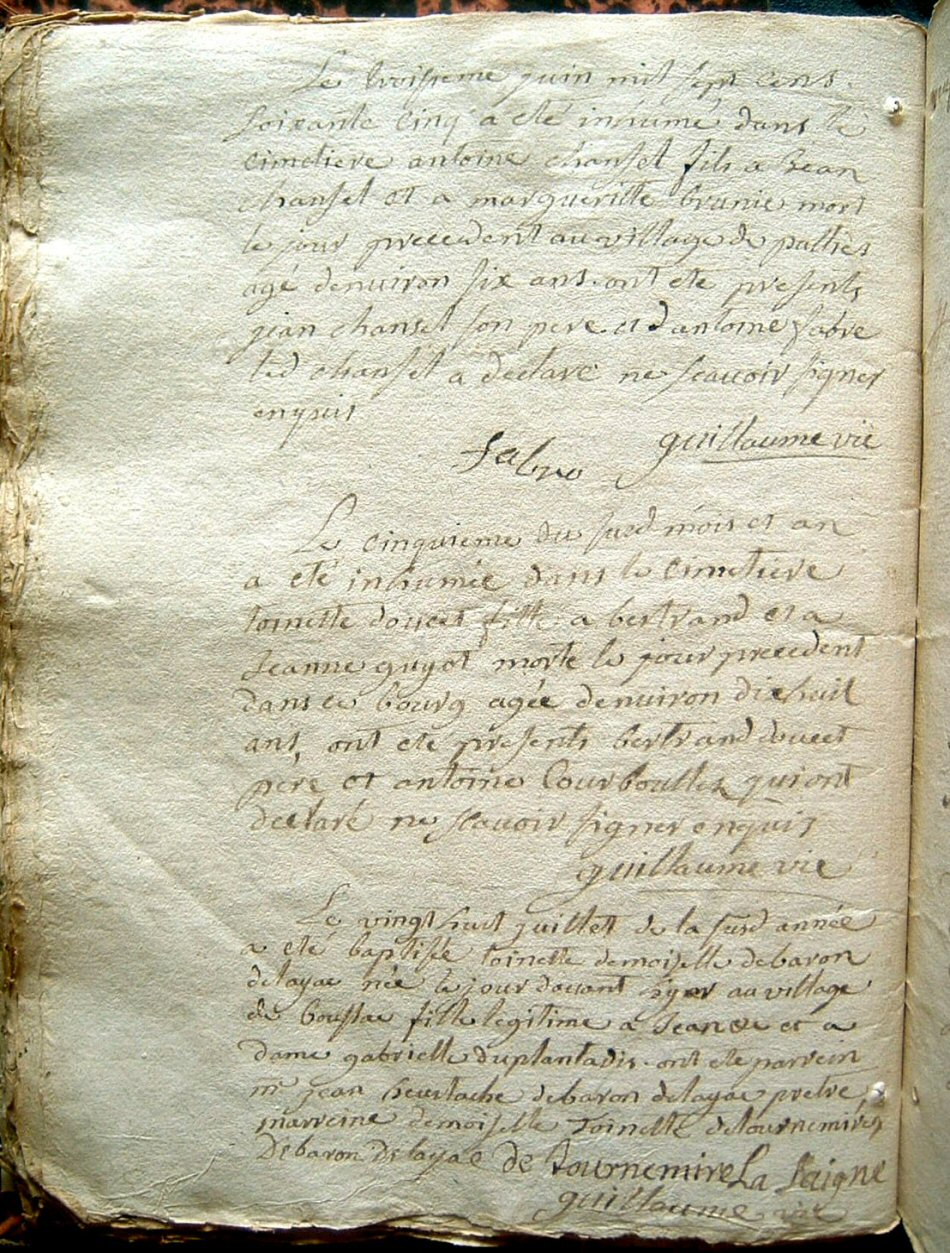 Le troisieme juin mil sept cens
soixante cinq a eté inhumé dans le
cimetiere antoine chanset fils a jean
chanset et a margueritte brunie mort
le jour precedent au village de
agé denuiron six ans. ont eté presents
jean chanset son pere et d antoine fabre
led chanset a declaré ne scauoir signer
enquis
fabre guillaume vie
Le cinquieme du susd mois et an
a eté inhumée dans le cimetiere
toinette doucet fille a bertrand et a
jeanne guyot morte le jour precedent
dans ce bourg agée denuiron dixhuit
ans, ont eté presents bertrand doucet
pere et antoine Courboulles qui ont
declaré ne scauoir signer enquis
guillaume vie
Le vingthuit juillet de la susd année
a eté baptisée toinette demoiselle debaron
delayac née le jour dauant hyer au village
de boussac fille legitime a jean et a
dame gabrielle duplantadis. ont eté parrein
mr jean heustache debaron delayac pretre
marreine demoiselle toinette detournemire
Debaron Delayac de tournemire La Saigne
guillaume vie